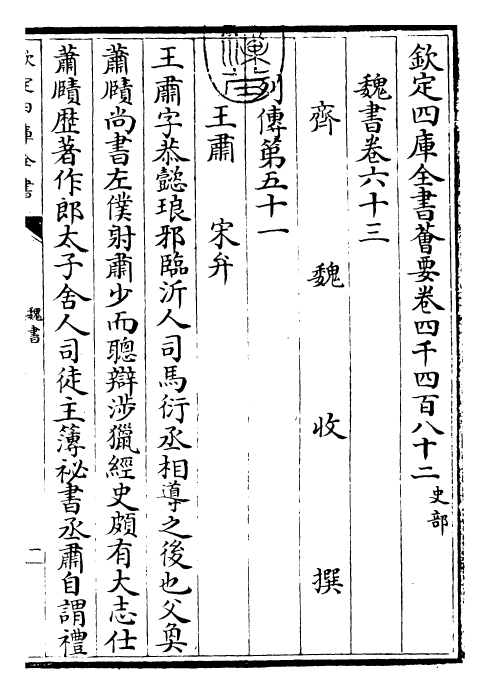 欽定四庫全書薈要卷四千四百八十二 史部
魏書卷六十三
齊 魏 收 撰
列傳第五十一
王肅 宋弁
王肅字恭懿琅邪臨沂人司馬衍丞相導之後也父奐
蕭賾尚書左僕射肅少而聰辯涉獵經史頗有大志仕
蕭賾歴著作郎太子舍人司徒主簿祕書丞肅自謂禮
欽定四庫全書
魏書